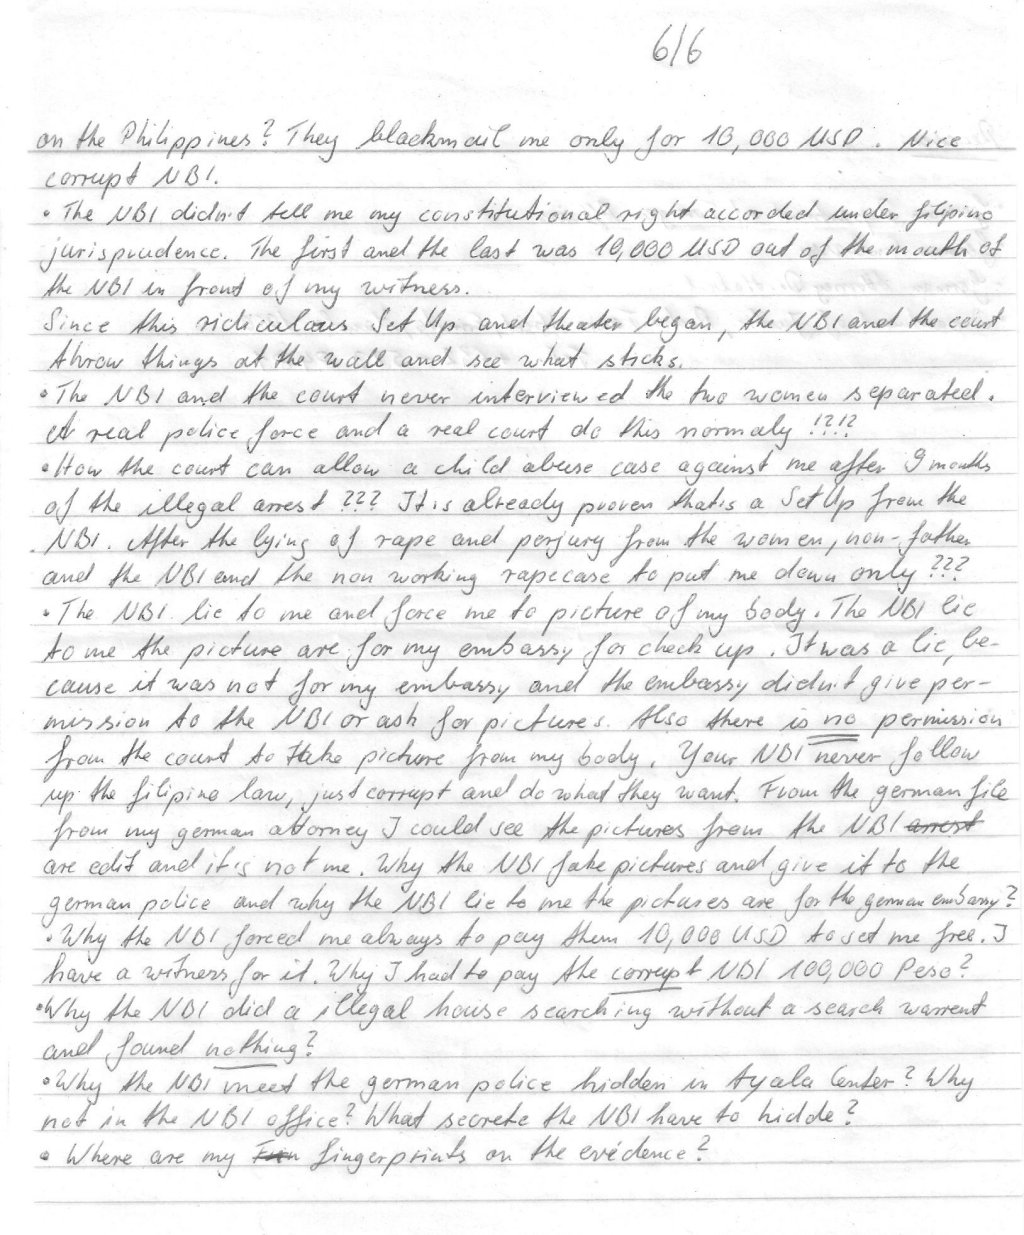 6/6
on the Philippines? They blackmail me only for 10,000 USD. Nice
corrupt NBI.
• The NBI didn't tell me my constitutional right accorded under filipino
jurisprudence. The first and the last was 10,000 USD out of the mouth of
the NBI in front of my witness.
Since this ridiculous Set Up and theater began, the NBI and the court
throw things at the wall and see what sticks.
• The NBI and the court never interviewed the two women separated.
A real police force and a real court do this normaly !?!?
• How the court can allow a child abuse case against me after 9 months
of the illegal arrest ??? It is already proven thats a Set Up from the
NBI. After the lying of rape and perjury from the women, non-father
and the NBI and the non working rapecase to put me down only ???
• The NBI lie to me and force me to picture of my body. The NBI lie
to me the picture are for my embassy for check up. It was a lie, be-
cause it was not for my embassy and the embassy didn't give per-
mission to the NBI or ask for pictures. Also there is no permission
from the court to take picture from my body. Your NBI never follow
up the filipino law, just corrupt and do what they want. From the german file
from my german attorney I could see the pictures from the NBI arrest
are edit and it is not me. Why the NBI fake pictures and give it to the
german police and why the NBI lie to me the pictures are for the german embassy?
• Why the NBI forced me always to pay them 10,000 USD to set me free. I
have a witness for it. Why I had to pay the corrupt NBI 100,000 Peso?
• Why the NBI did a illegal house searching without a search warrent
and found nothing?
• Why the NBI meet the german police hidden in Ayala Center? Why
not in the NBI office? What secrete the NBI have to hidde?
• Where are my fingerprints on the evidence?